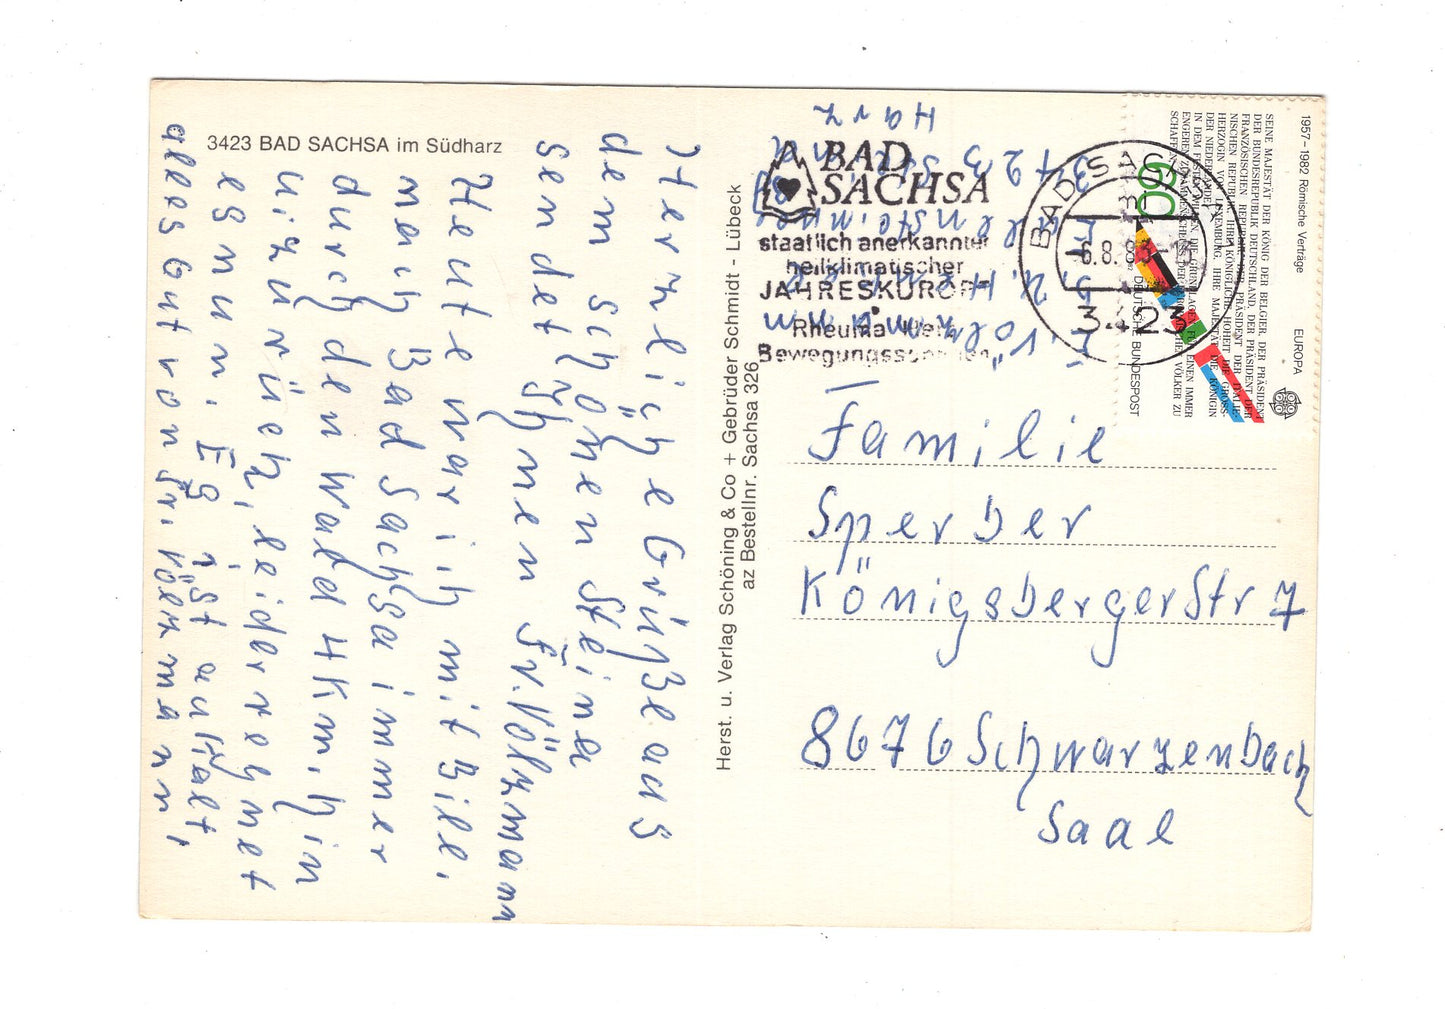 3423 BAD SACHSA im Südharz
Herzliche Grüße aus
dem schönen Steina
sendet Ihnen Fr. Völzmann
Heute war ich mit Bille.
nach Bad Sachsa immer
durch den Wald 4 Km. hin
u. zurück, leider regnet
es nun. Eg ist aukalt,
alles Gut von Fr. Völzmann,
Herst. u. Verlag Schöning & Co + Gebrüder Schmidt - Lübeck
az Bestellnr. Sachsa 326
BAD
SACHSA
staatlich anerkannter
heilklimatischer
JAHRESKURORT
Rheuma
BAD SACHSA
6.8.83-13
3423
1957–1982 Römische Verträge
EUROPA
SEINE MAJESTÄT DER KÖNIG DER BELGIER, DER PRÄSIDENT
DER BUNDESREPUBLIK DEUTSCHLAND, DER PRÄSIDENT DER
FRANZÖSISCHEN REPUBLIK, DER PRÄSIDENT DER ITALIE-
NISCHEN REPUBLIK, IHRE KÖNIGLICHE HOHEIT DIE GROSS-
HERZOGIN VON LUXEMBURG, IHRE MAJESTÄT DIE KÖNIGIN
DER NIEDERLANDE,
IN DEM FESTEN WILLEN, DIE GRUNDLAGEN FÜR EINEN IMMER
ENGEREN ZUSAMMENSCHLUSS DER EUROPÄISCHEN VÖLKER ZU
SCHAFFEN
60
DEUTSCHE BUNDESPOST
3423
Harz
Familie
Sperber
Königsberger Str 7
8676 Schwarzenbach
Saal